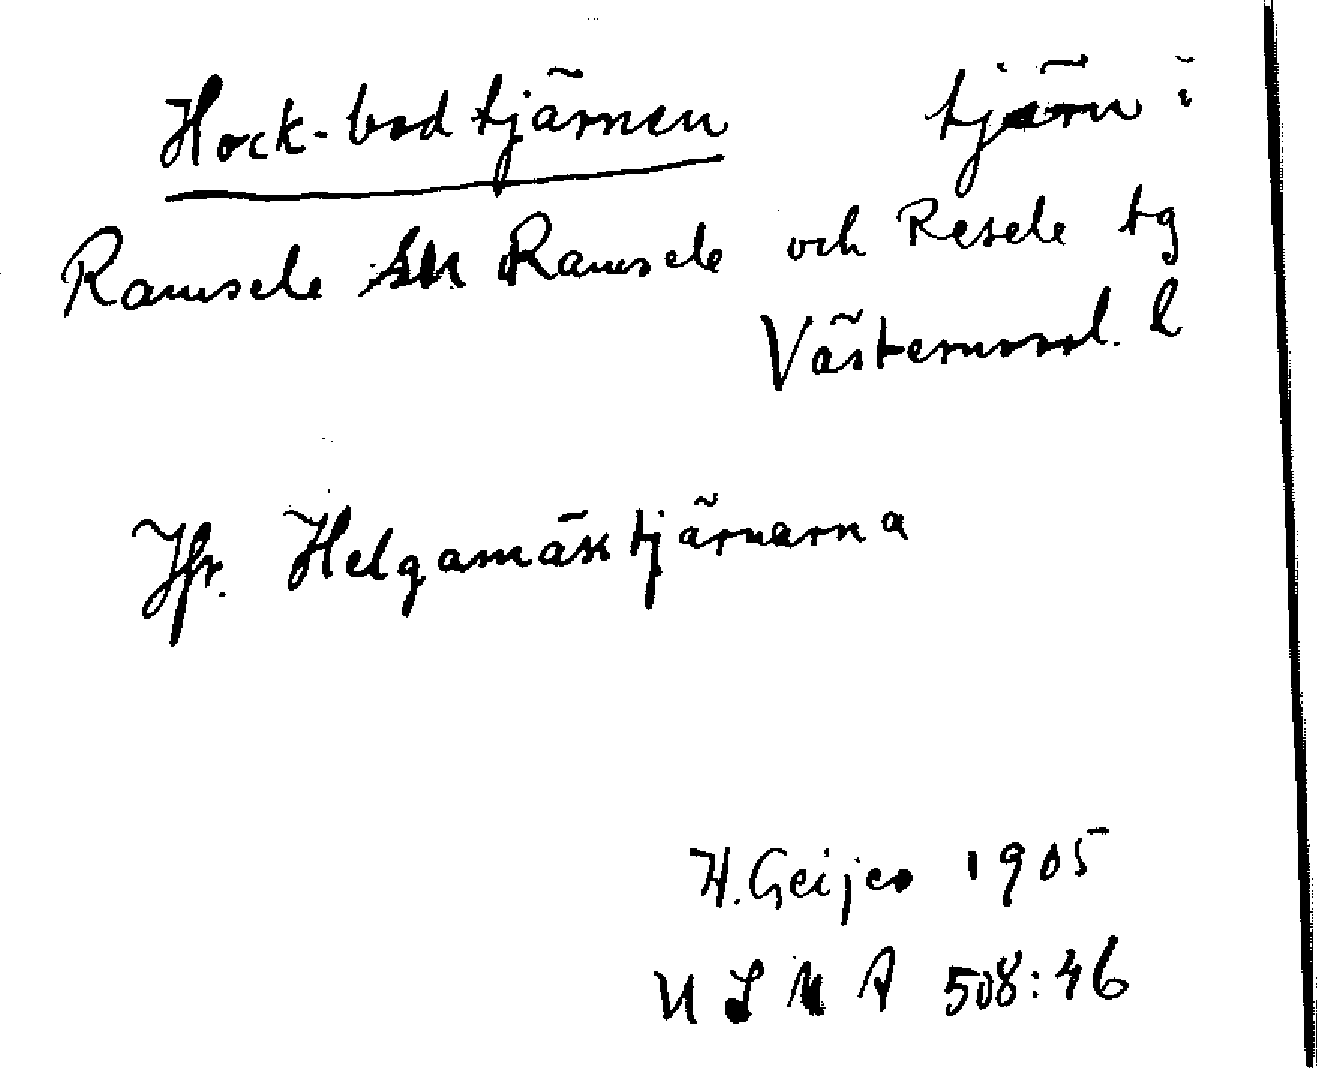 Hock-bodtjärnen tjärn i
Ramsele sn Ramsele och Resele tg
Västernorrl. l
Jfr. Helgamäktjärnarna
H. Geijer 1905
ULMA 508:46